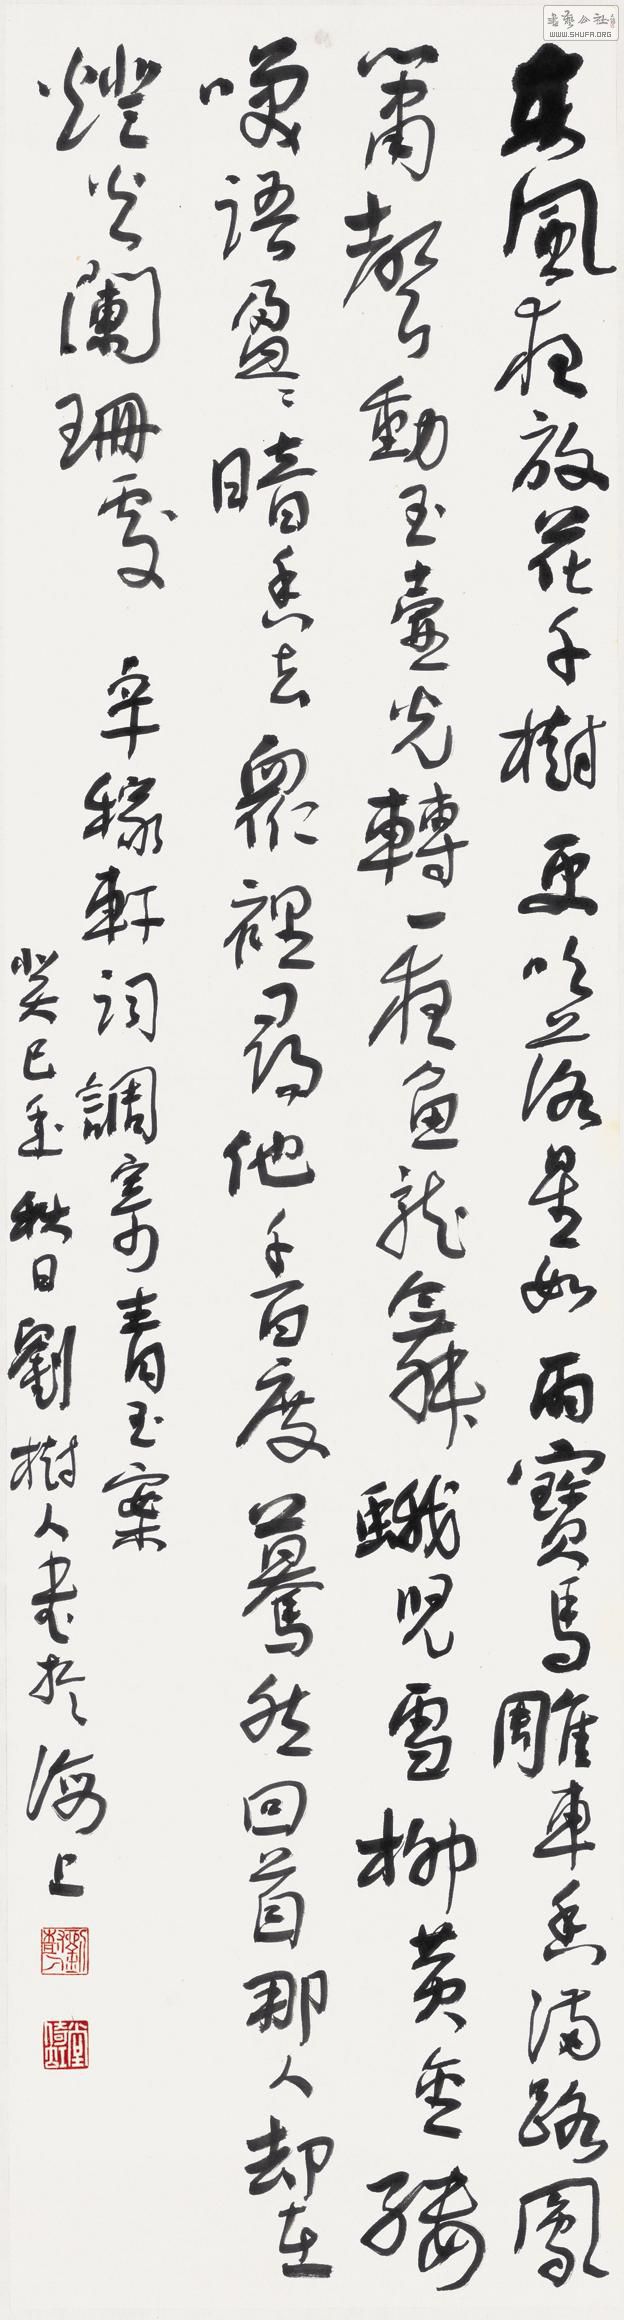 東風夜放花千樹更吹落星如雨寶馬雕車香滿路鳳
簫聲動玉壺光轉一夜魚龍舞蛾兒雪柳黃金縷
咲語盈〻暗香去衆裡尋他千百度驀然回首那人却在
燈火闌珊處 辛稼軒詞調寄青玉案
癸巳年秋日劉樹人書於海上
劉樹人
書藝公社
WWW.SHUFA.ORG